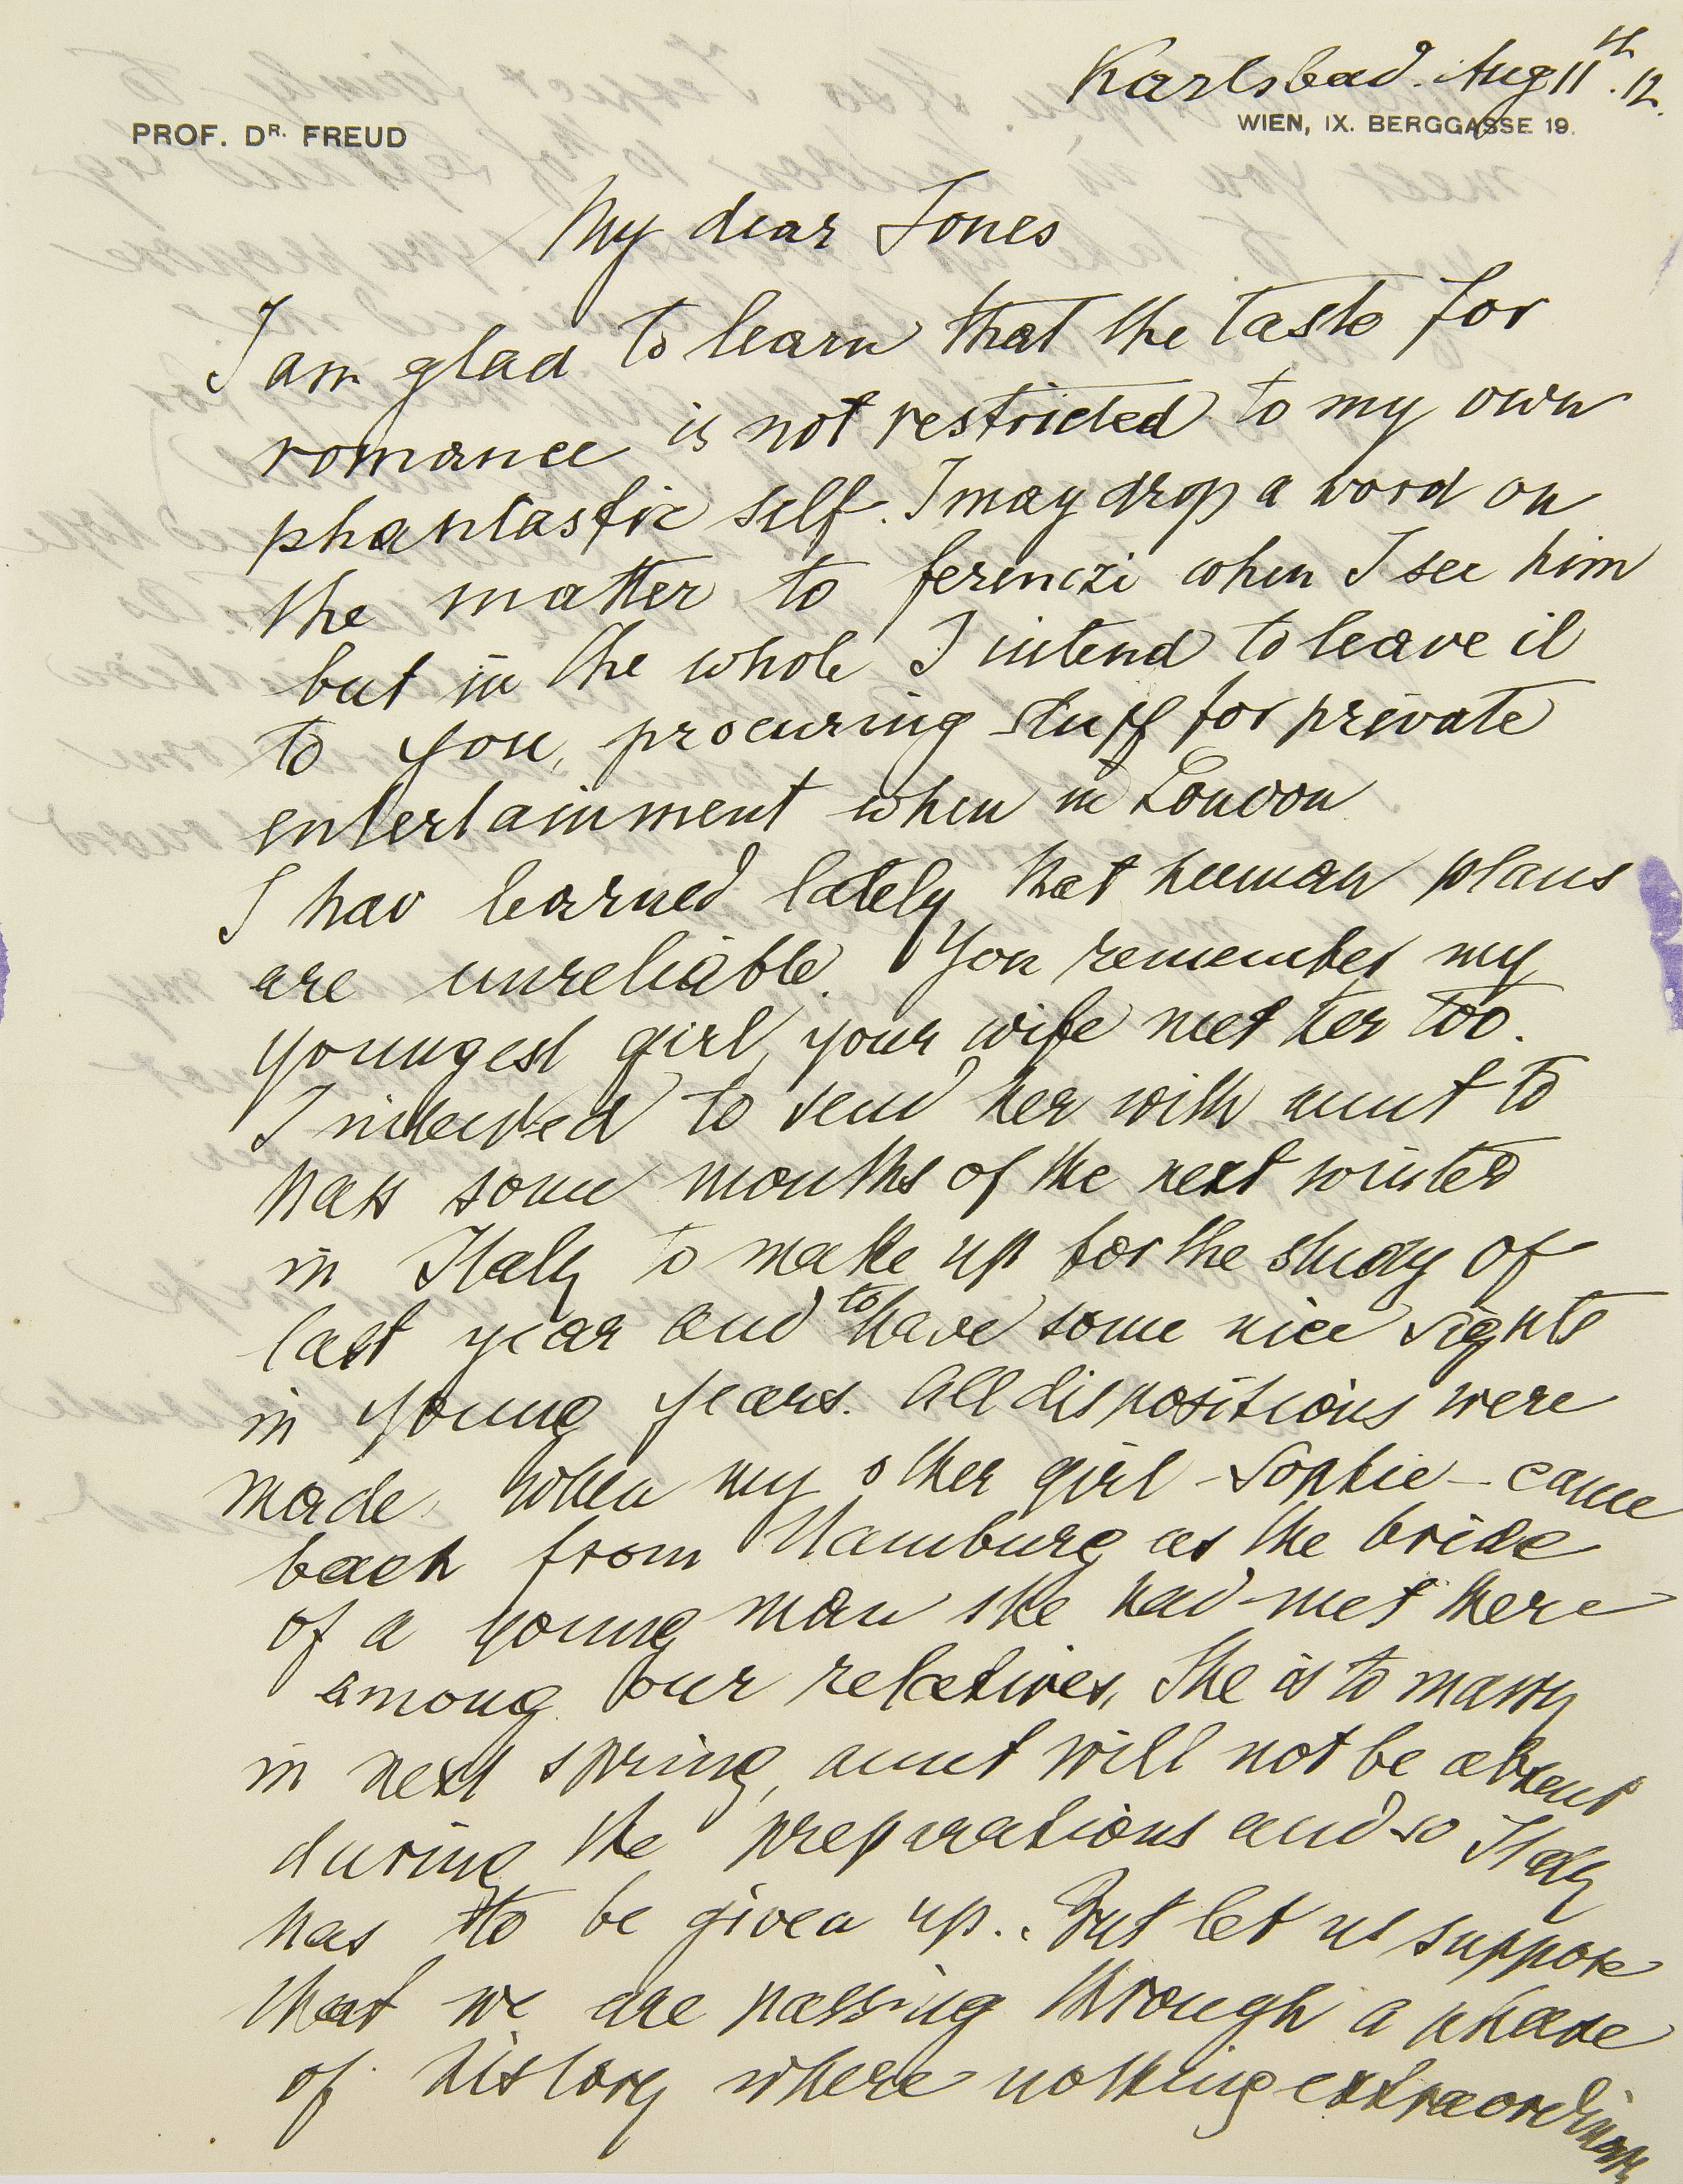 Karlsbad. Aug 11th. 12.
PROF. DR. FREUD
WIEN, IX. BERGGASSE 19.
My dear Jones
I am glad to learn that the taste for
romance is not restricted to my own
phantastic self. I may drop a word on
the matter to ferenczi when I see him
but in the whole I intend to leave it
to you, procuring stuff for private
entertainment when in London.
I hav learned lately that human plans
are unreliable. You remember my
youngest girl, your wife met her too.
I intended to send her with aunt to
pass some months of the next winter
in Italy to make up for the study of
last year and to have some nice sights
in young years. All dispositions were
made, when my other girl – Sophie – came
back from Hamburg as the bride
of a young man she had met there
among our relatives, She is to marry
in next spring, aunt will not be absent
during the preparations and so Italy
has to be given up. But let us suppose
that we are passing through a phase
of history where nothing extraordinary